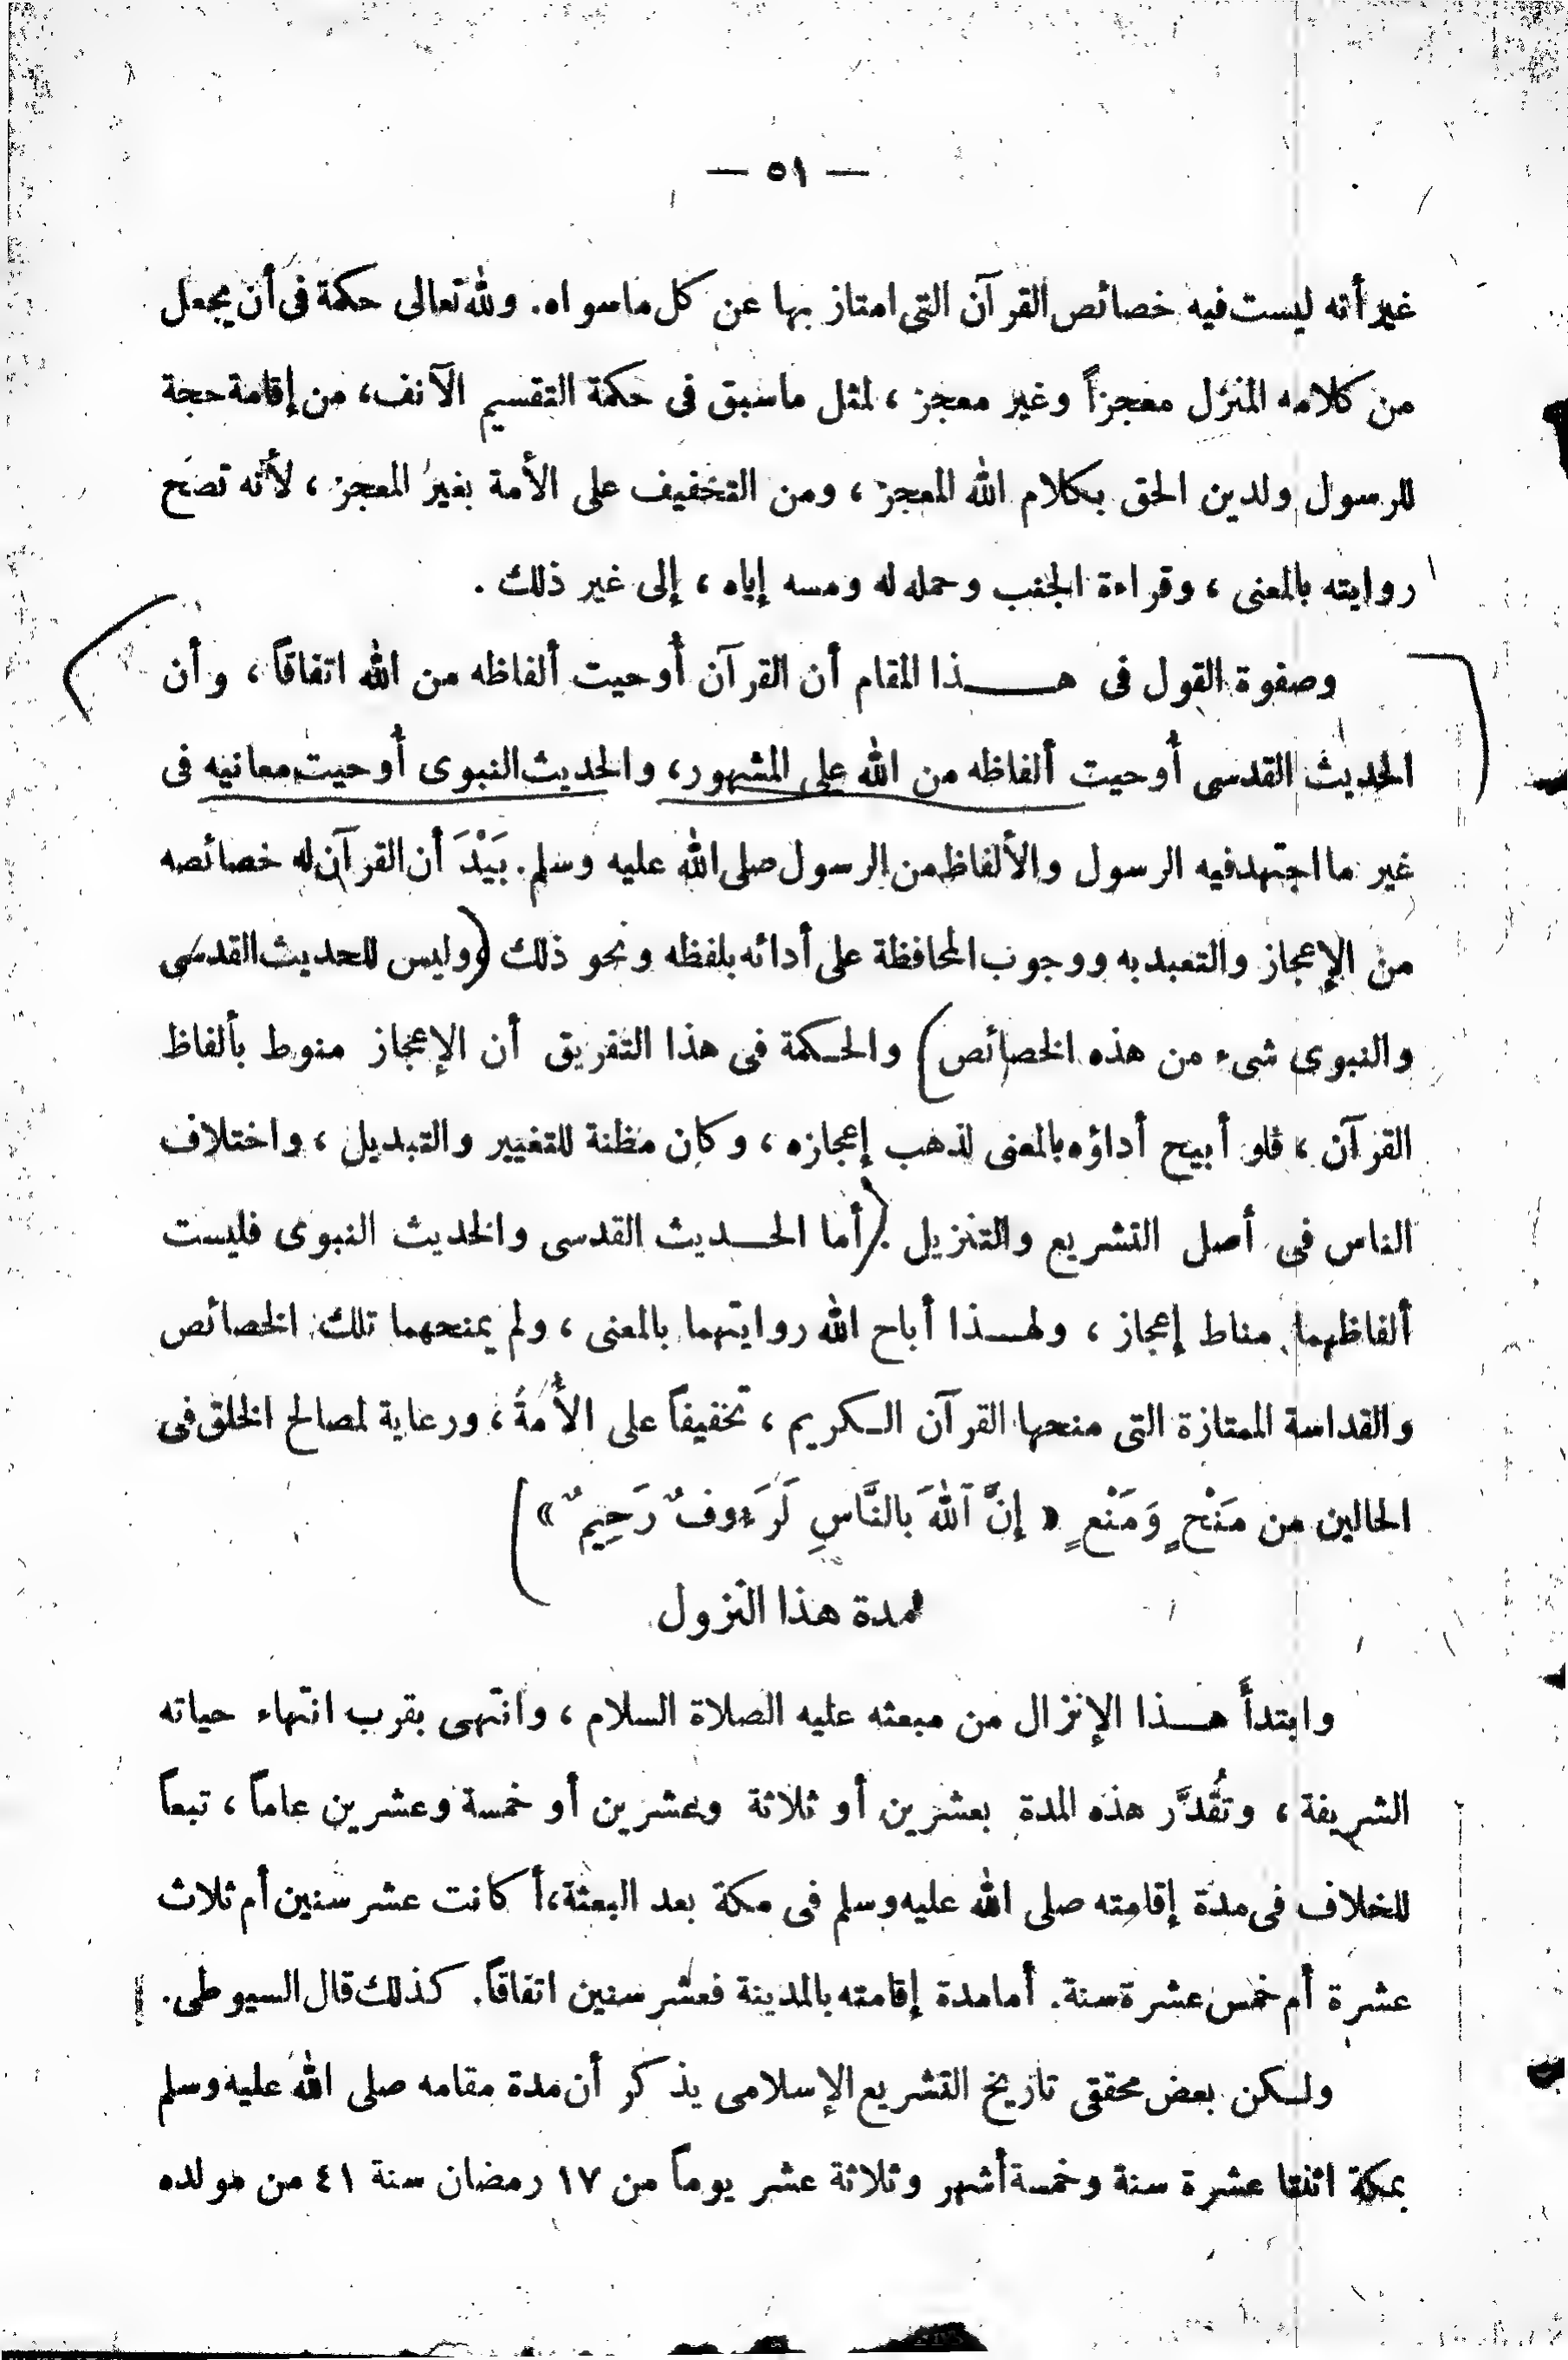 — ٥١ —
غير أنه ليست فيه خصائص القرآن التى امتاز بها عن كل ماسواه. ولله تعالى حكمة فى أن يجعل
من كلامه المنزل معجزاً وغير معجز ، لمثل ماسبق فى حكمة التقسيم الآنف، من إقامة حجة
للرسول ولدين الحق بكلام الله المعجز ، ومن التخفيف على الأمة بغير المعجز ، لأنه تصح
روايته بالمعنى ، وقراءة الجنب وحمله له ومسه إياه ، إلى غير ذلك .
وصفوة القول فى هــــذا المقام أن القرآن أُوحيت ألفاظه من الله اتفاقاً ، وأن
الحديث القدسى أُوحيت ألفاظه من الله على المشهور، والحديث النبوى أُوحيت معانيه فى
غير ما اجتهد فيه الرسول والألفاظ من الرسول صلى الله عليه وسلم. بَيْدَ أن القرآن له خصائصه
من الإعجاز والتعبد به ووجوب المحافظة على أدائه بلفظه ونحو ذلك (وليس للحديث القدسى
والنبوى شىء من هذه الخصائص) والحـكمة فى هذا التفريق أن الإعجاز منوط بألفاظ
القرآن ، فلو أبيح أداؤه بالمعنى لذهب إعجازه ، وكان مظنة للتغيير والتبديل ، واختلاف
الناس فى أصل التشريع والتنزيل . (أما الحـــديث القدسى والحديث النبوى فليست
ألفاظهما مناط إعجاز ، ولهــذا أباح الله روايتهما بالمعنى ، ولم يمنحهما تلك الخصائص
والقداسة الممتازة التى منحها القرآن الـكريم ، تخفيفاً على الأُمة ، ورعاية لمصالح الخلق فى
الحالين من مَنْحٍ وَمَنْعٍ « إِنَّ ٱللهَ بالنَّاسِ لَرَءوفٌ رَحِيمٌ »)
مدة هذا النزول
وابتدأَ هــذا الإنزال من مبعثه عليه الصلاة السلام ، وانتهى بقرب انتهاء حياته
الشريفة ، وتُقدَّر هذه المدة بعشرين أو ثلاثة وعشرين أو خمسة وعشرين عاماً ، تبعاً
للخلاف فى مدة إقامته صلى الله عليه وسلم فى مكة بعد البعثة، أكانت عشر سنين أم ثلاث
عشرة أم خمس عشرة سنة. أما مدة إقامته بالمدينة فعشر سنين اتفاقاً. كذلك قال السيوطى.
ولـكن بعض محققى تاريخ التشريع الإسلامى يذكر أن مدة مقامه صلى الله عليه وسلم
بمكة اثنتا عشرة سنة وخمسة أشهر وثلاثة عشر يوماً من ١٧ رمضان سنة ٤١ من مولده